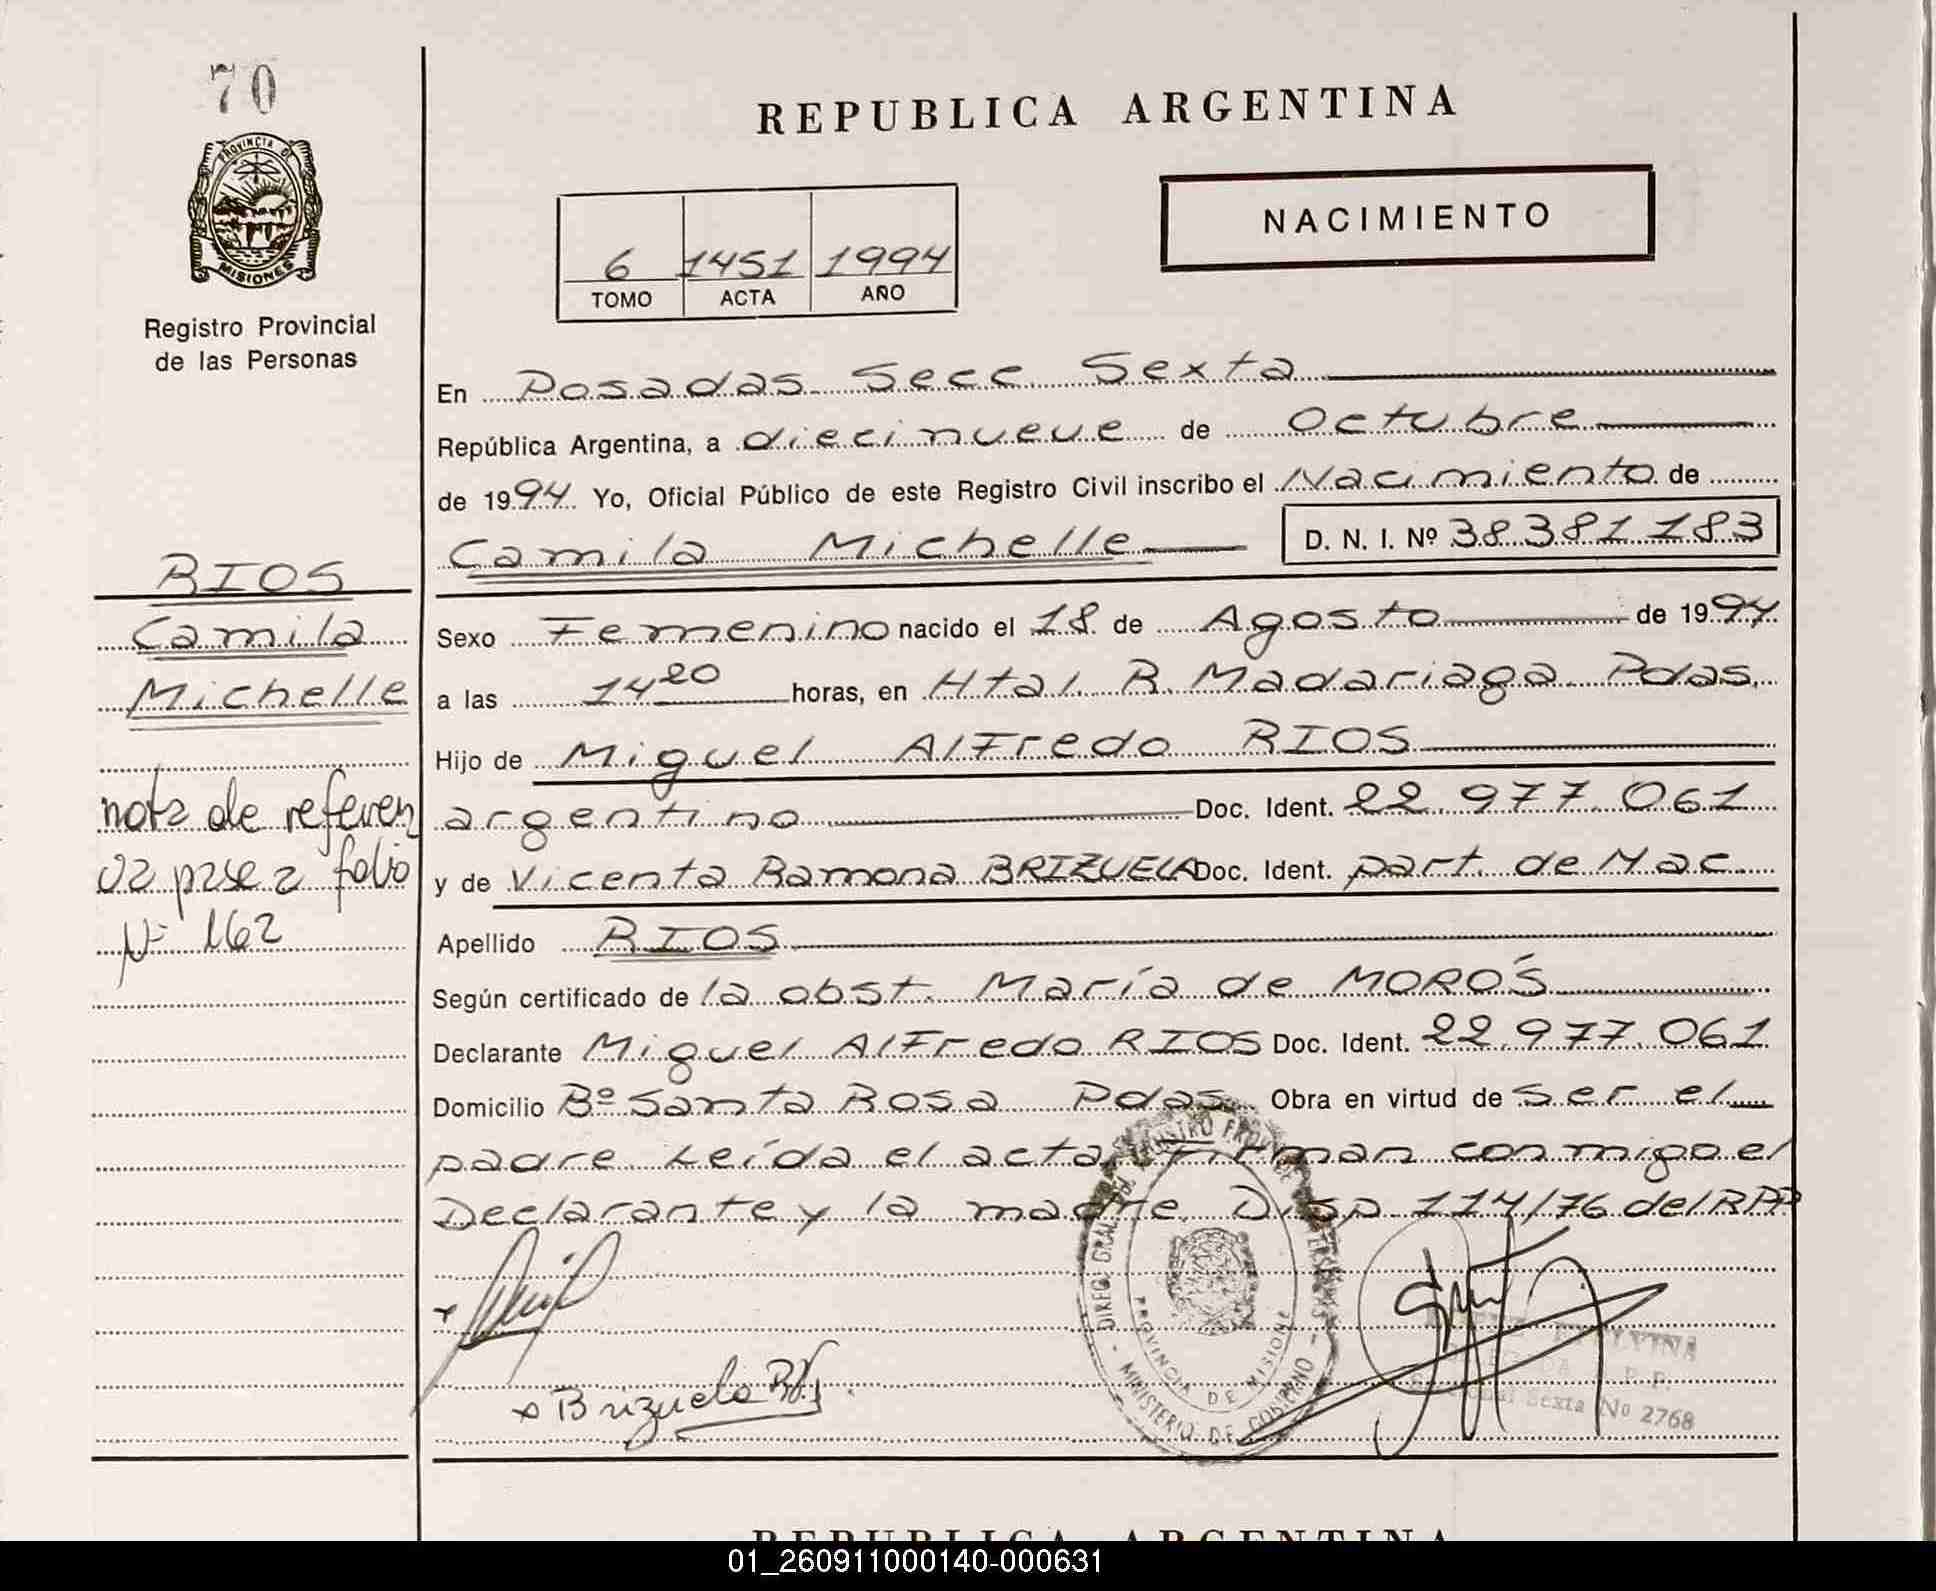 70
PROVINCIA DE
MISIONES
Registro Provincial
de las Personas
REPUBLICA ARGENTINA
NACIMIENTO
6 1451 1994
TOMO ACTA AÑO
En Posadas Secc Sexta
República Argentina, a diecinueve de Octubre
de 1994. Yo, Oficial Público de este Registro Civil inscribo el Nacimiento de
Camila Michelle D. N. I. Nº 38381183
RIOS
Camila
Michelle
Sexo Femenino nacido el 18 de Agosto de 1994
a las 14 20 horas, en Htal. R. Madariaga Pdas.
Hijo de Miguel Alfredo RIOS
argentino Doc. Ident. 22.977.061
y de Vicenta Ramona BRIZUELA Doc. Ident. part. de Mac
nota de referen
cia pase a folio
Nº 162
Apellido RIOS
Según certificado de la obst. María de MORO'S
Declarante Miguel Alfredo RIOS Doc. Ident. 22.977.061
Domicilio Bº Santa Rosa Pdas. Obra en virtud de ser el
padre. Leída el acta, Firman conmigo el
Declarante y la madre. Disp. 114/76 del RPP
Brizuela
DIREC. GRAL. DEL REGISTRO PROVINCIAL DE LAS PERSONAS
PROVINCIA DE MISIONES
MINISTERIO DE GOBIERNO
Sexta Nº 2768
REPUBLICA ARGENTINA
01_260911000140-000631